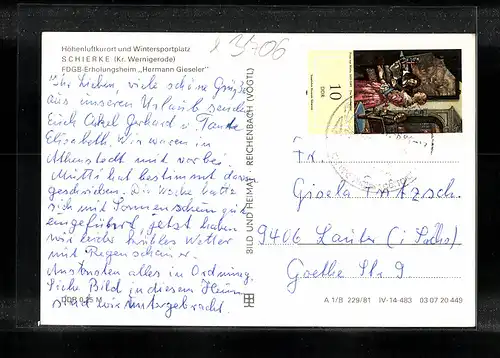 λ 31706
Höhenluftkurort und Wintersportplatz
SCHIERKE (Kr. Wernigerode)
FDGB-Erholungsheim „Hermann Gieseler“
Ihr Lieben, viele schöne Grüße
aus unserem Urlaub senden
Euch Onkel Gerhard u. Tante
Elisabeth. Wir waren in
Athenstedt mit vorbei.
Mutti hat bestimmt davon
geschrieben. Die Woche hatte
sich mit Sonnenschein gut
eingeführt, jetzt haben
wir leider kühles Wetter
mit Regenschauer.
Ansonsten alles in Ordnung.
Siehe Bild in diesem Heim
sind wir untergebracht.
DDR 0,25 M
BILD UND HEIMAT REICHENBACH (VOGTL)
10
DDR
Fr.
Gisela Fratzsch.
9406 Lauter (i. Sachs)
Goethe Str. 9
A 1/B 229/81 IV-14-483 03 07 20 449